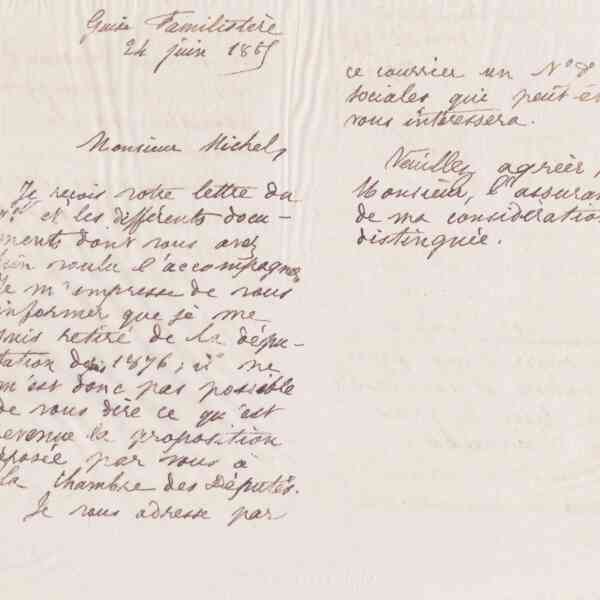 Guise Familistère
24 juin 18
Monsieur Michel,
Je reçois votre lettre du
et les différents docu-
ments dont vous avez
bien voulu l'accompagner
Je m'empresse de vous
informer que je me
suis retiré de la dépu-
tation depuis 1876; il ne
m'est donc pas possible
de vous dire ce qu'est
devenue la proposition
déposée par vous à
la Chambre des Députés.
Je vous adresse par
ce courrier un N° d
sociales qui peut-êt
vous intéressera.
Veuillez agréer,
Monsieur, l'assuran
de ma considération
distinguée.